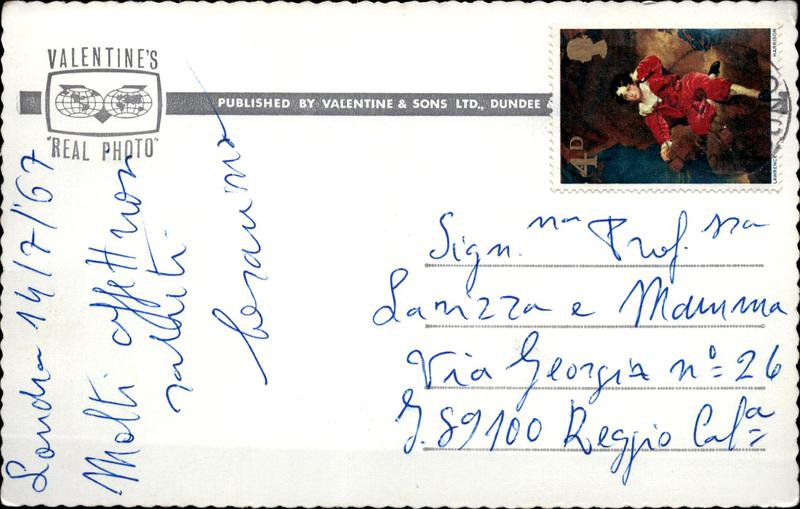 VALENTINE'S
"REAL PHOTO"
PUBLISHED BY VALENTINE & SONS LTD., DUNDEE &
4D
HARRISON
LAWRENCE
Londra 14/7/'67
Molti affettuosi
saluti.
Sign.na Prof.ssa
Larizza e Mamma
Via Georgia n°= 26
89100 Reggio Cal.a=